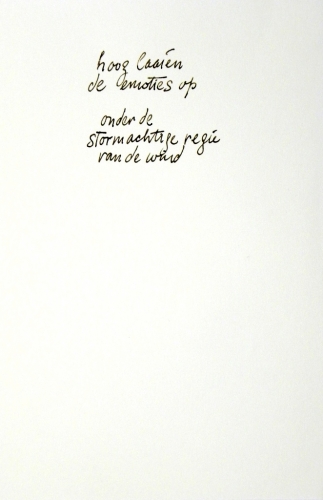 hoog laaien
de emoties op
onder de
stormachtige regie
van de wind